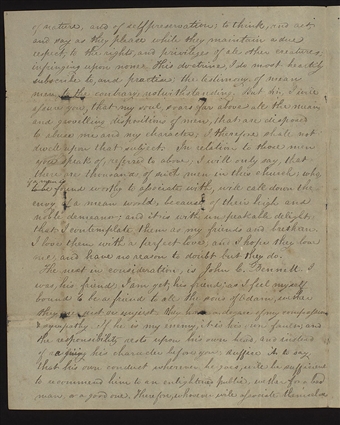 of nature, and of self preservation; to think, and act,
and say as they please while they maintain a due
respect, to the rights, and privileges of all other creatures,
infringing upon none. This doctrine, I do most heartily
subscribe to, and practice, the testimony of mean
men to the contrary, notwithstanding. But Sir, I will
assure you, that my soul, soars far above all the mean
and grovelling disposition of men, that are disposed
to abuse me and my character, I therefore shall not
dwell upon that subject: In relation to those men
you speak of, referred to above, I will only say, that
there are thousands of such men in this church; who
to be found worthy to associate with, will call down the
envy of a mean world, because of their high and
noble demeanor; and it is with unspeakable delight,
that I contemplate them as my friends and brethren.
I love them with a perfect love, and I hope they love
me, and have no reason to doubt but they do.
The next in consideration, is John C. Bennett. I
was, his friend; I am yet, his friend; as I feel myself
bound to be a friend to all the sons of Adam, whether
they are just or unjust, they have a degree of my compassion
& sympathy. If he is my enemy, it is his, own fault; and
the responsibility rests upon his own head, and instead
of a giving his character before you, suffice it to say
that his own conduct wherever he goes, will be sufficient
to recommend him to an enlightened public, whether for a bad
man, or a good one. Therefore, whosoever will associate themselves